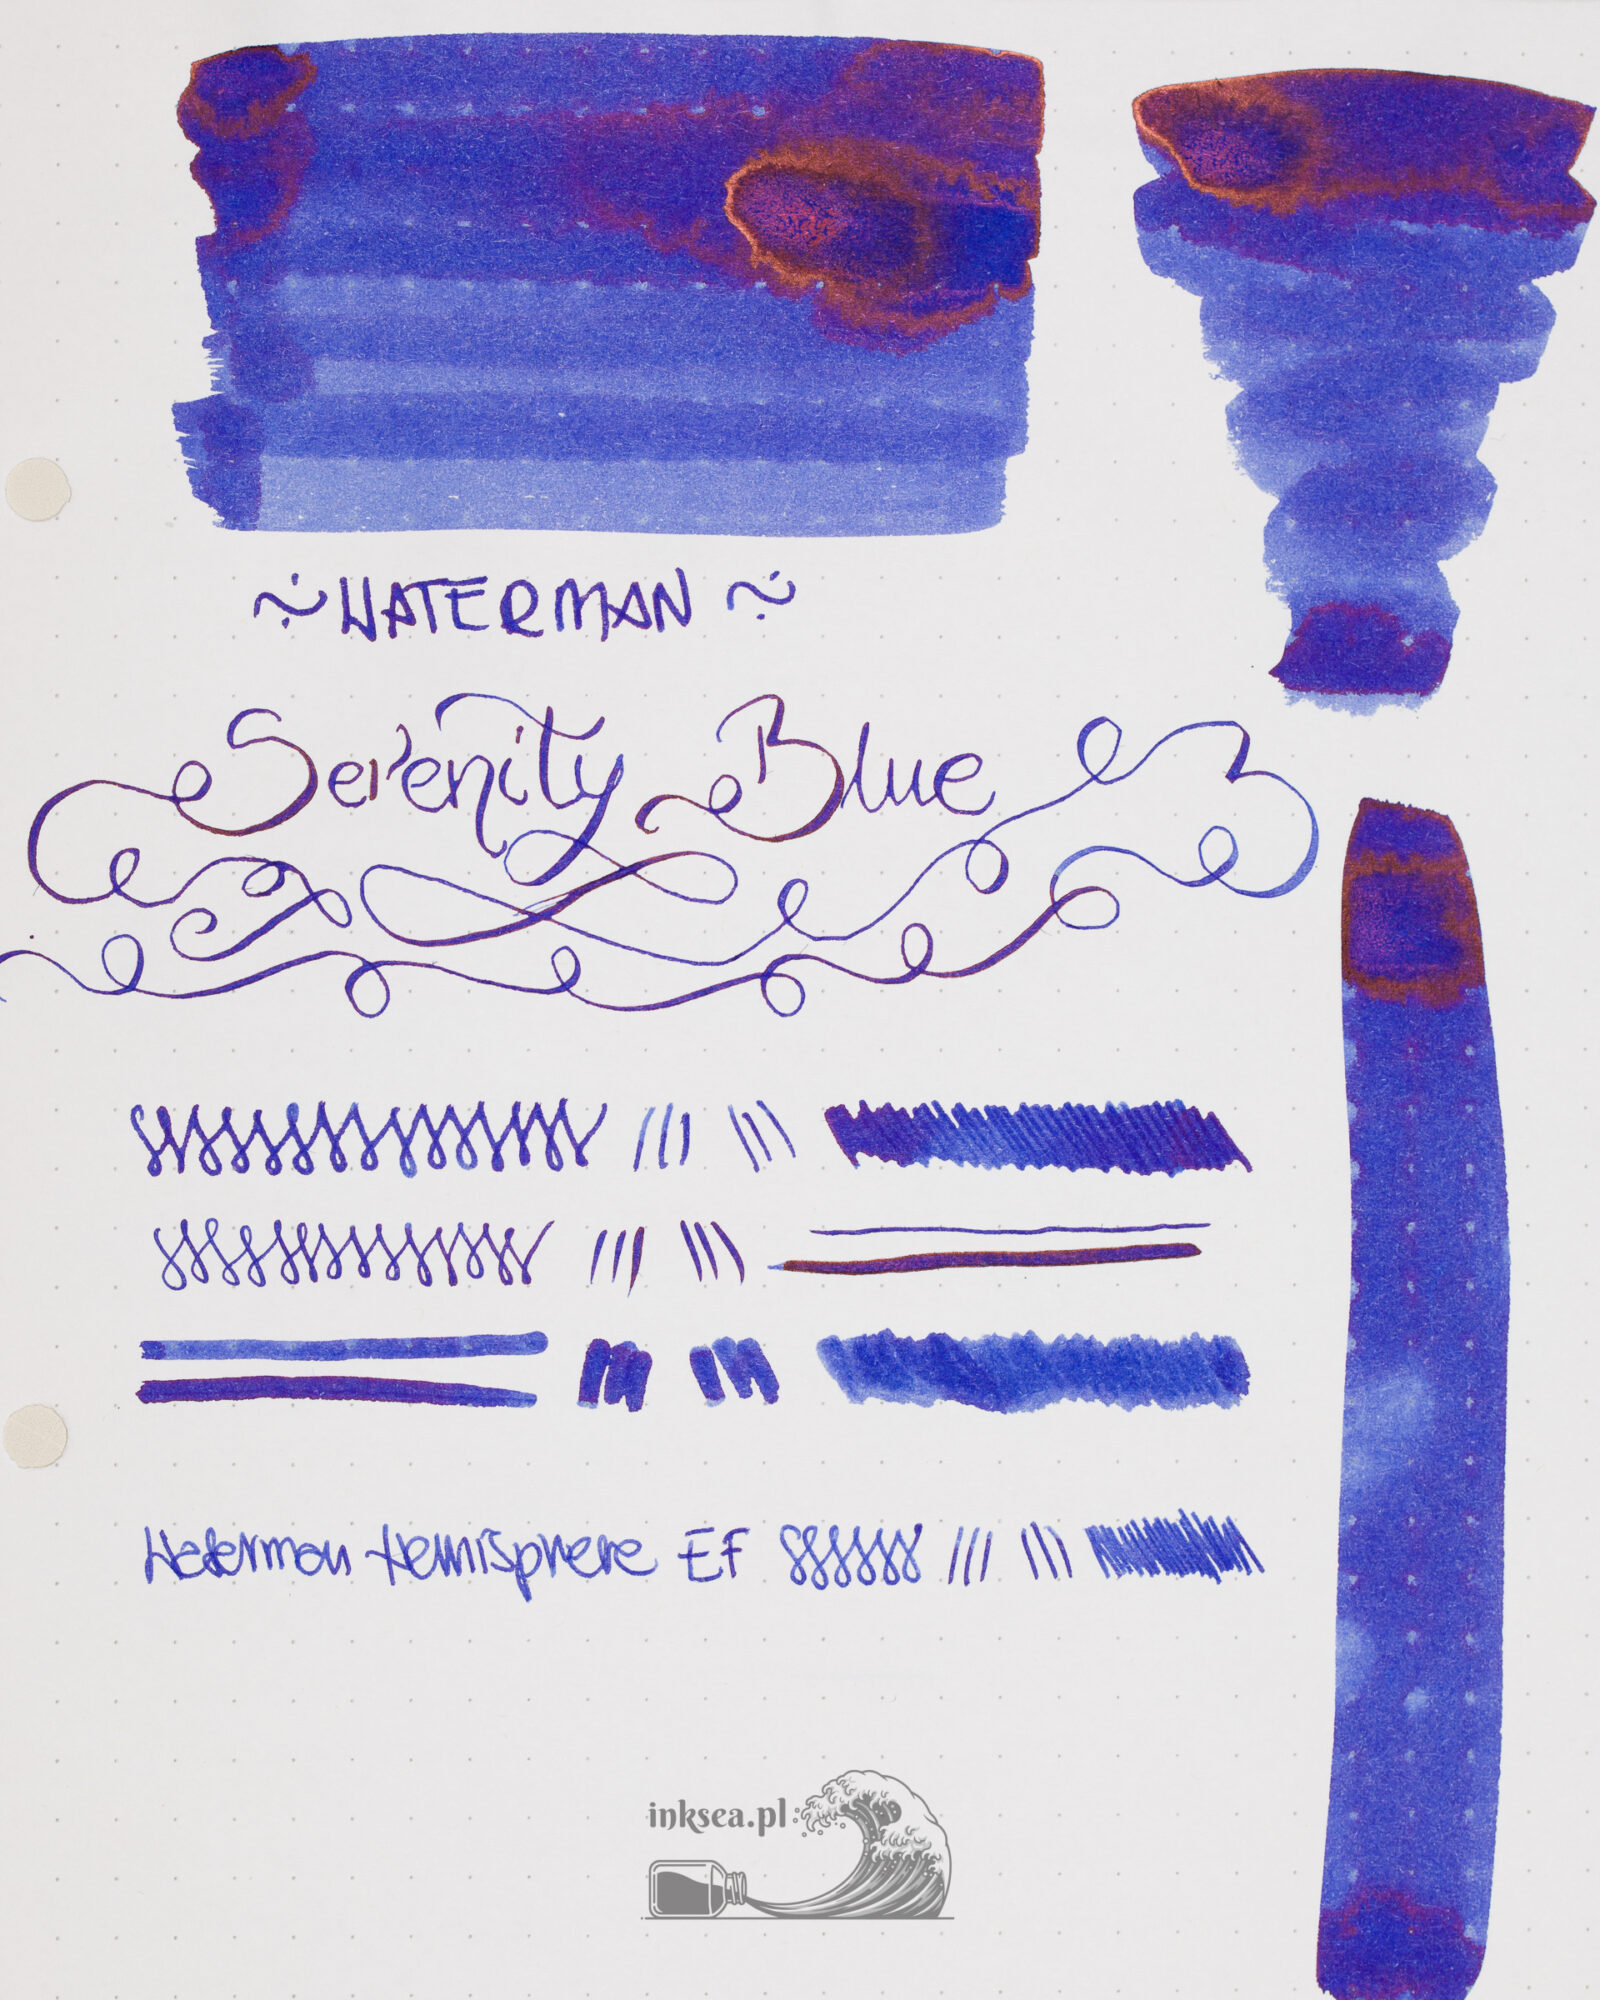 ~ WATERMAN ~
Serenity Blue
Waterman Hemisphere EF
inksea.pl